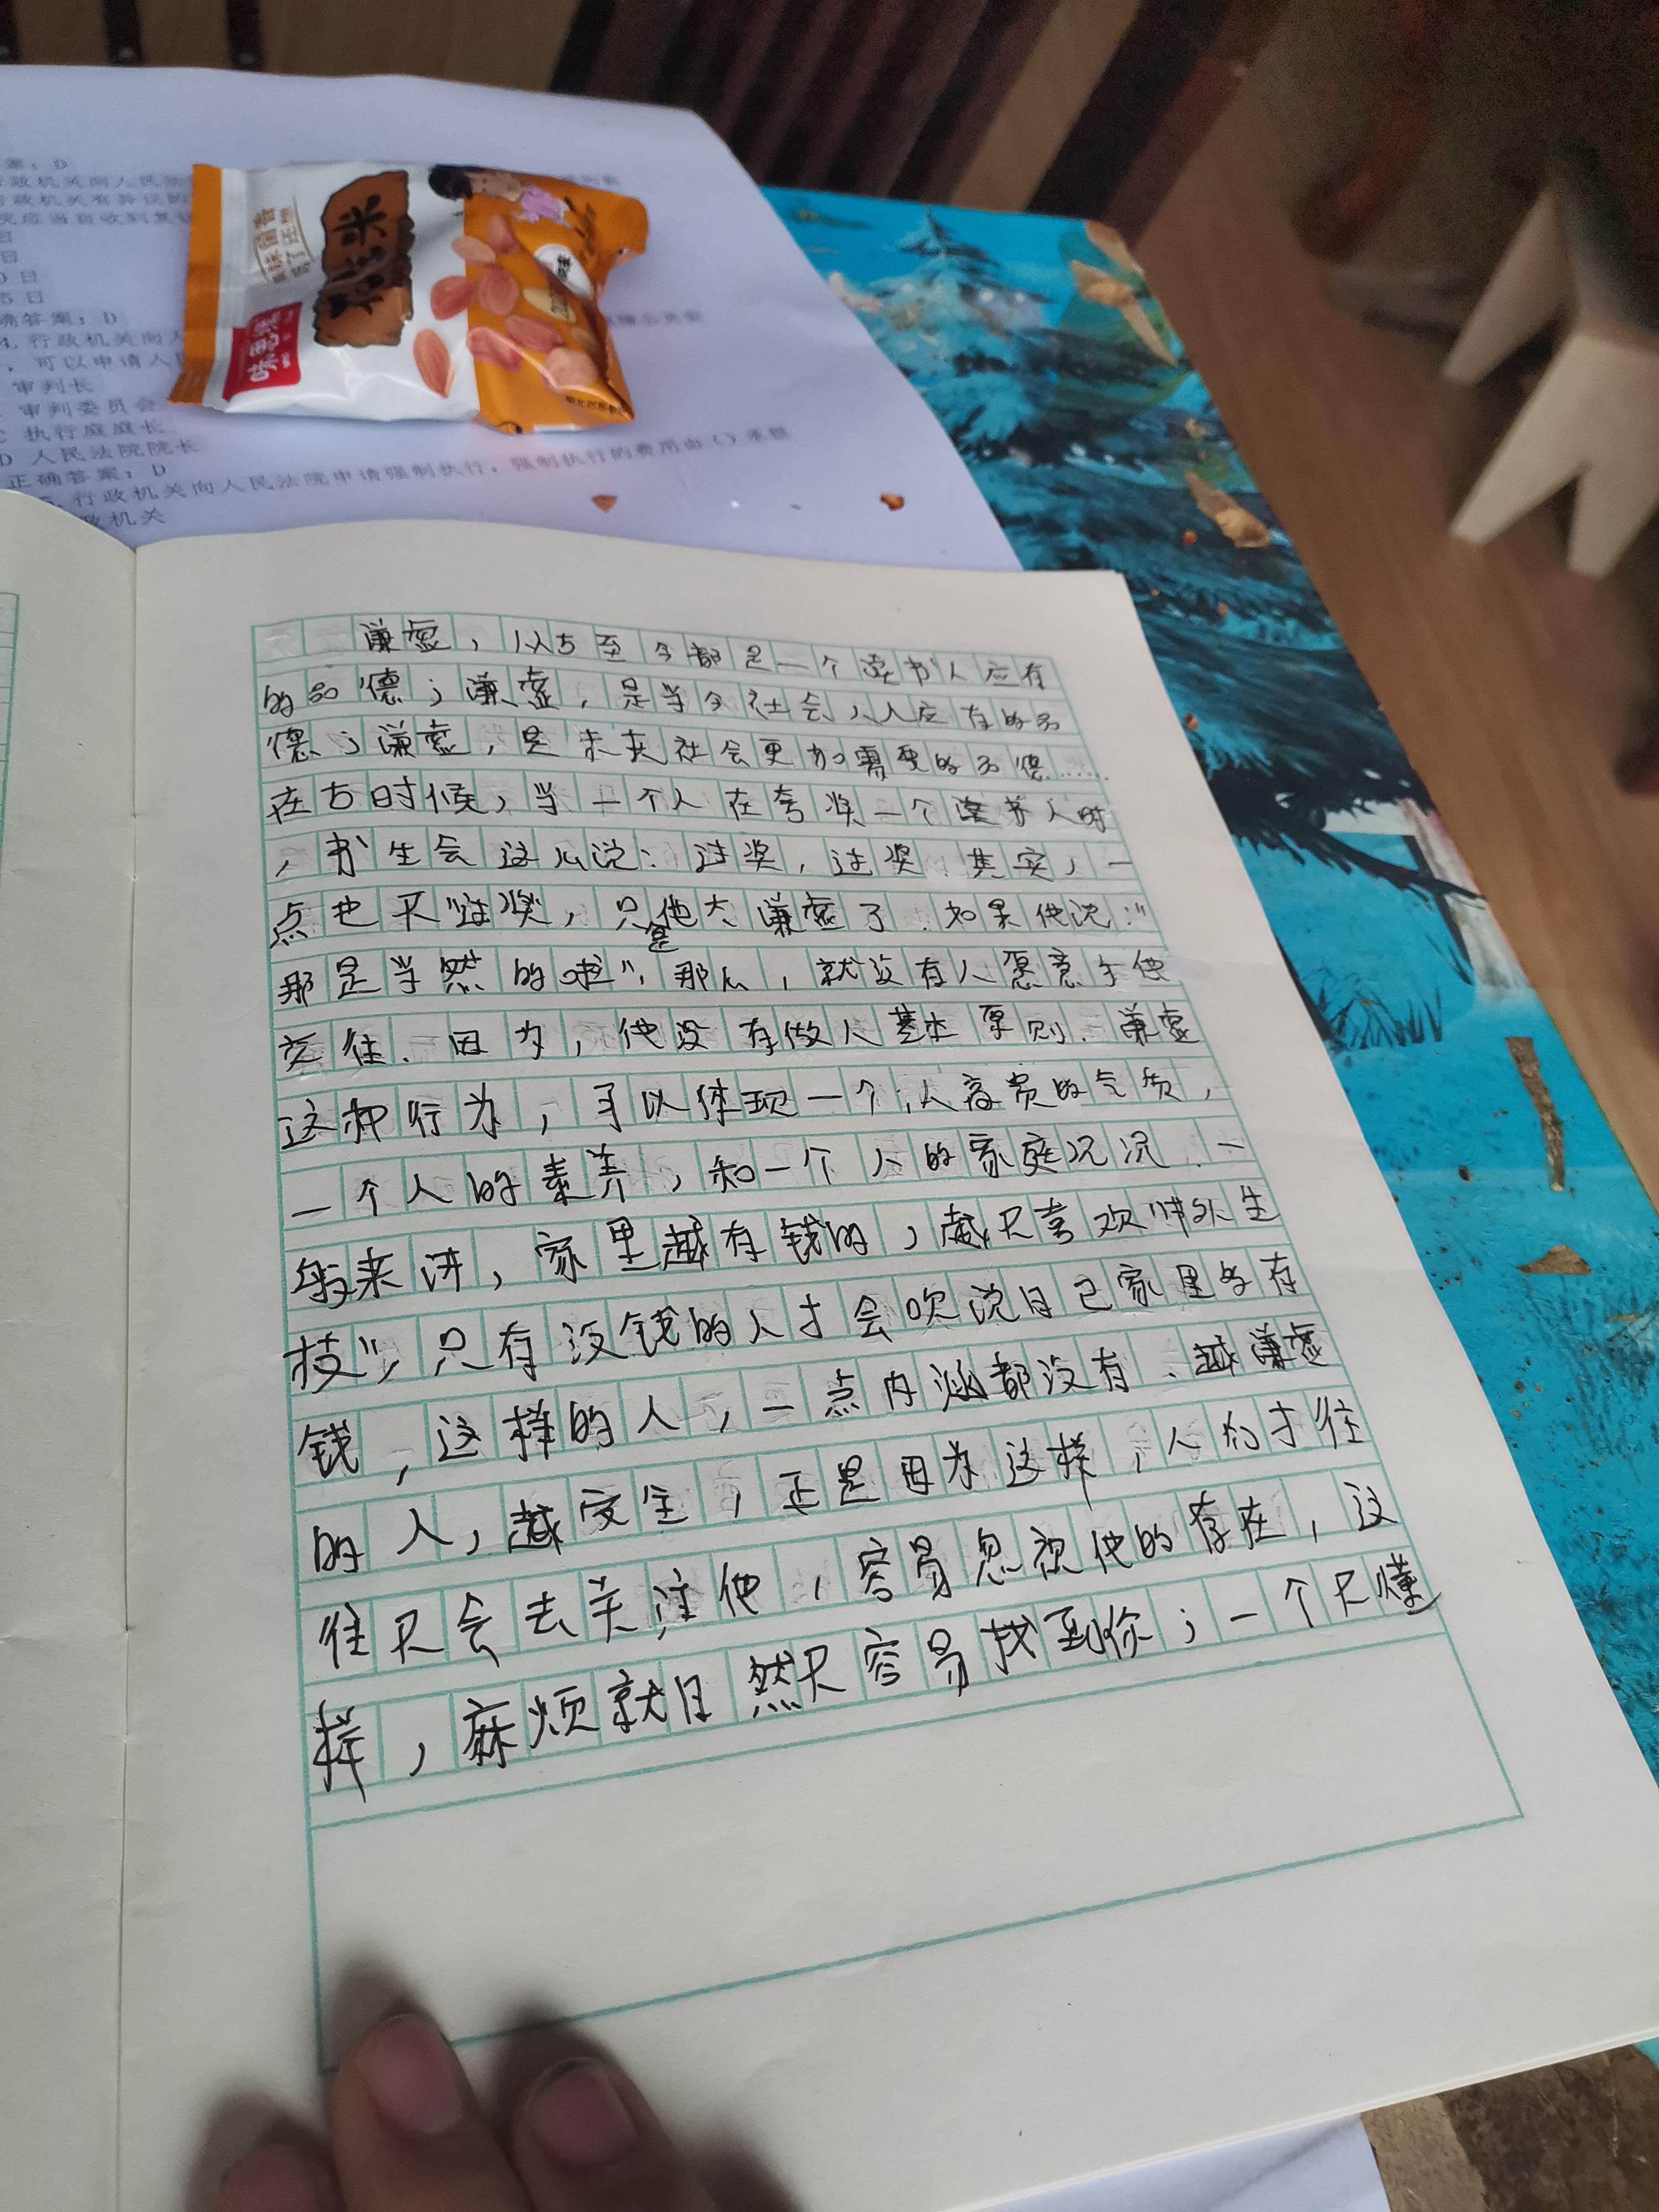 案：D
行政机关向人民法
行政机关有异议的
院应当自收到复议
日
日
0日
5日
确答案：D
4.行政机关向人
，可以申请人民
审判长
审判委员会
C 执行庭庭长
D 人民法院院长
正确答案：D
行政机关向人民法院申请强制执行，强制执行的费用由()承担
政机关
花米
味
谦虚，从古至今都是一个读书人应有
的品德；谦虚，是当今社会人人应有的品
德；谦虚，是未来社会更加需要的品德……
在古时候，当一个人在夸奖一个读书人时
，书生会这么说：过奖，过奖．其实，一
点也不“过奖”，只是他太谦虚了．如果他说：“
那是当然的啦”，那么，就没有人愿意于他
交往．因为，他没有做人基本原则．谦虚
这种行为，可以体现一个人高贵的气质，
一个人的素养，和一个人的家庭况况．一
般来讲，家里越有钱的，越不喜欢“节外生
枝”，只有没钱的人才会吹说自己家里多有
钱，这样的人，一点内涵都没有．越谦虚
的人，越安全，正是因为这样，人们才往
往不会去关注他，容易忽视他的存在，这
样，麻烦就自然不容易找到你；一个不懂